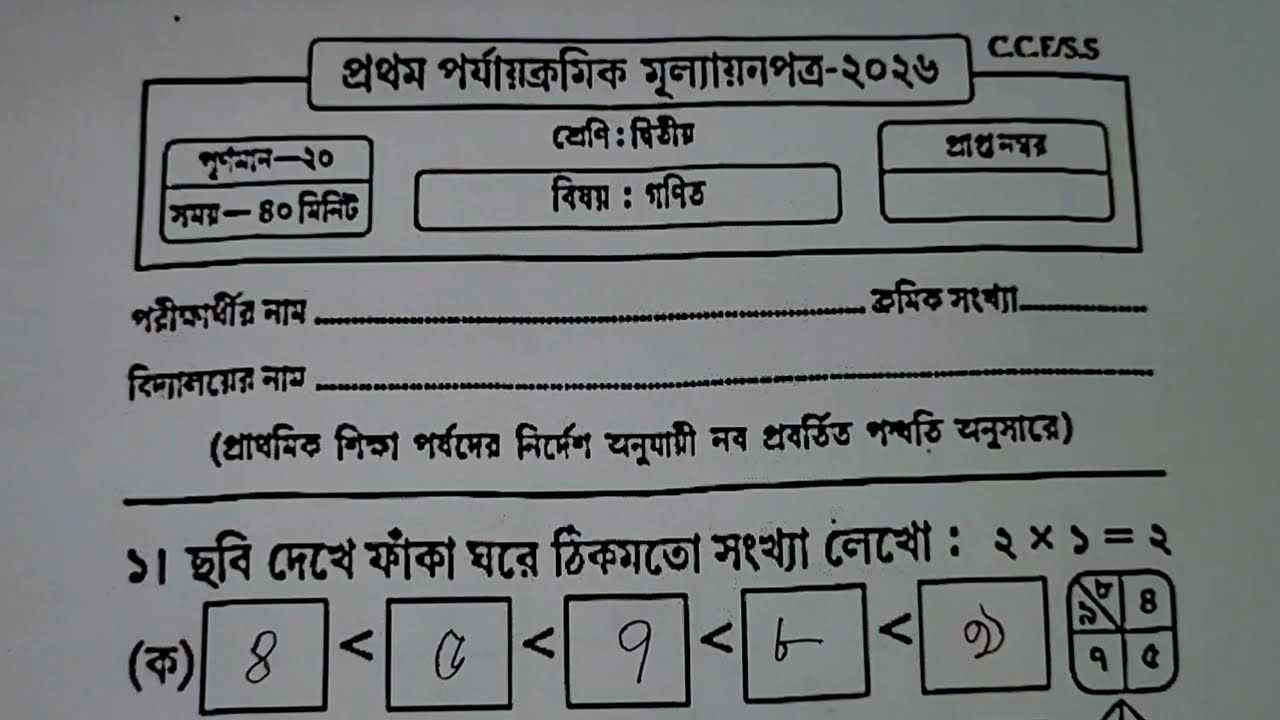 C.C.E/S.S
প্রথম পর্যায়ক্রমিক মূল্যায়নপত্র-২০২৬
শ্রেণি : দ্বিতীয়
পূর্ণমান—২০
সময়— ৪০ মিনিট
বিষয় : গণিত
প্রাপ্ত নম্বর
পরীক্ষার্থীর নাম ........ ক্রমিক সংখ্যা........
বিদ্যালয়ের নাম ........
(প্রাথমিক শিক্ষা পর্ষদের নির্দেশ অনুযায়ী নব প্রবর্তিত পদ্ধতি অনুসারে)
১। ছবি দেখে ফাঁকা ঘরে ঠিকমতো সংখ্যা লেখো : ২ × ১ = ২
(ক) ৪ < ৫ < ৭ < ৮ < ৯
৯ ৮ ৪
৭ ৫